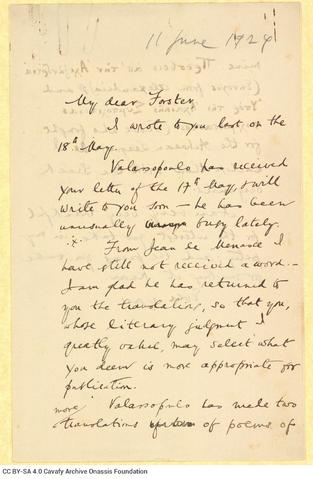 11 June 1924
My dear Forster,
I wrote to you last on the
18th May.
Valassopoulo has received
your letter of the 17th May, & will
write to you soon — he has been
unusually busy lately.
.x. From Jean de Menasce I
have still not received a word. —
I am glad he has returned to
you the translations, so that you,
whose literary judgment I
greatly value, may select what
you deem is more appropriate for
publication.
more Valassopoulo has made two
translations of poems of
CC BY-SA 4.0 Cavafy Archive Onassis Foundation